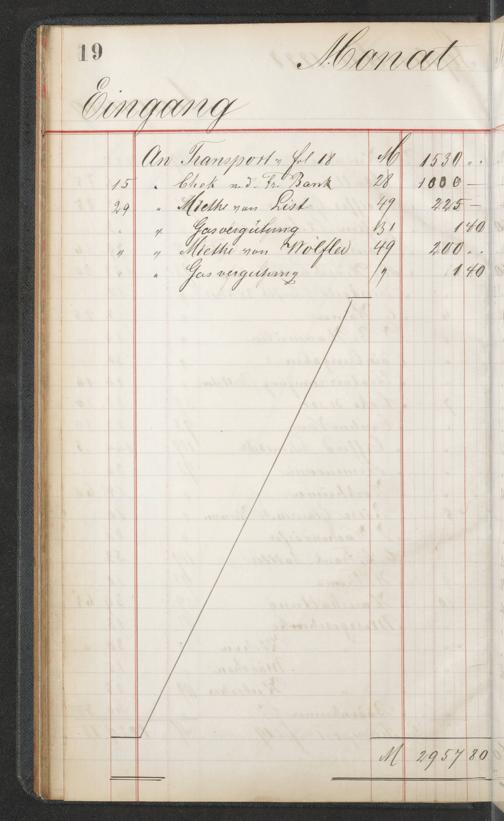 19 Monat
Eingang
An Transport v. fol 18 M 1530 ..
15 " Chek a. d. Bank 28 1000 —
29 " Miethe von List 49 225 —
" " Gasvergütung 31 1 40
" " Miethe von Wölfled 49 200 ..
" Gasvergütung 1 40
M 2957 80